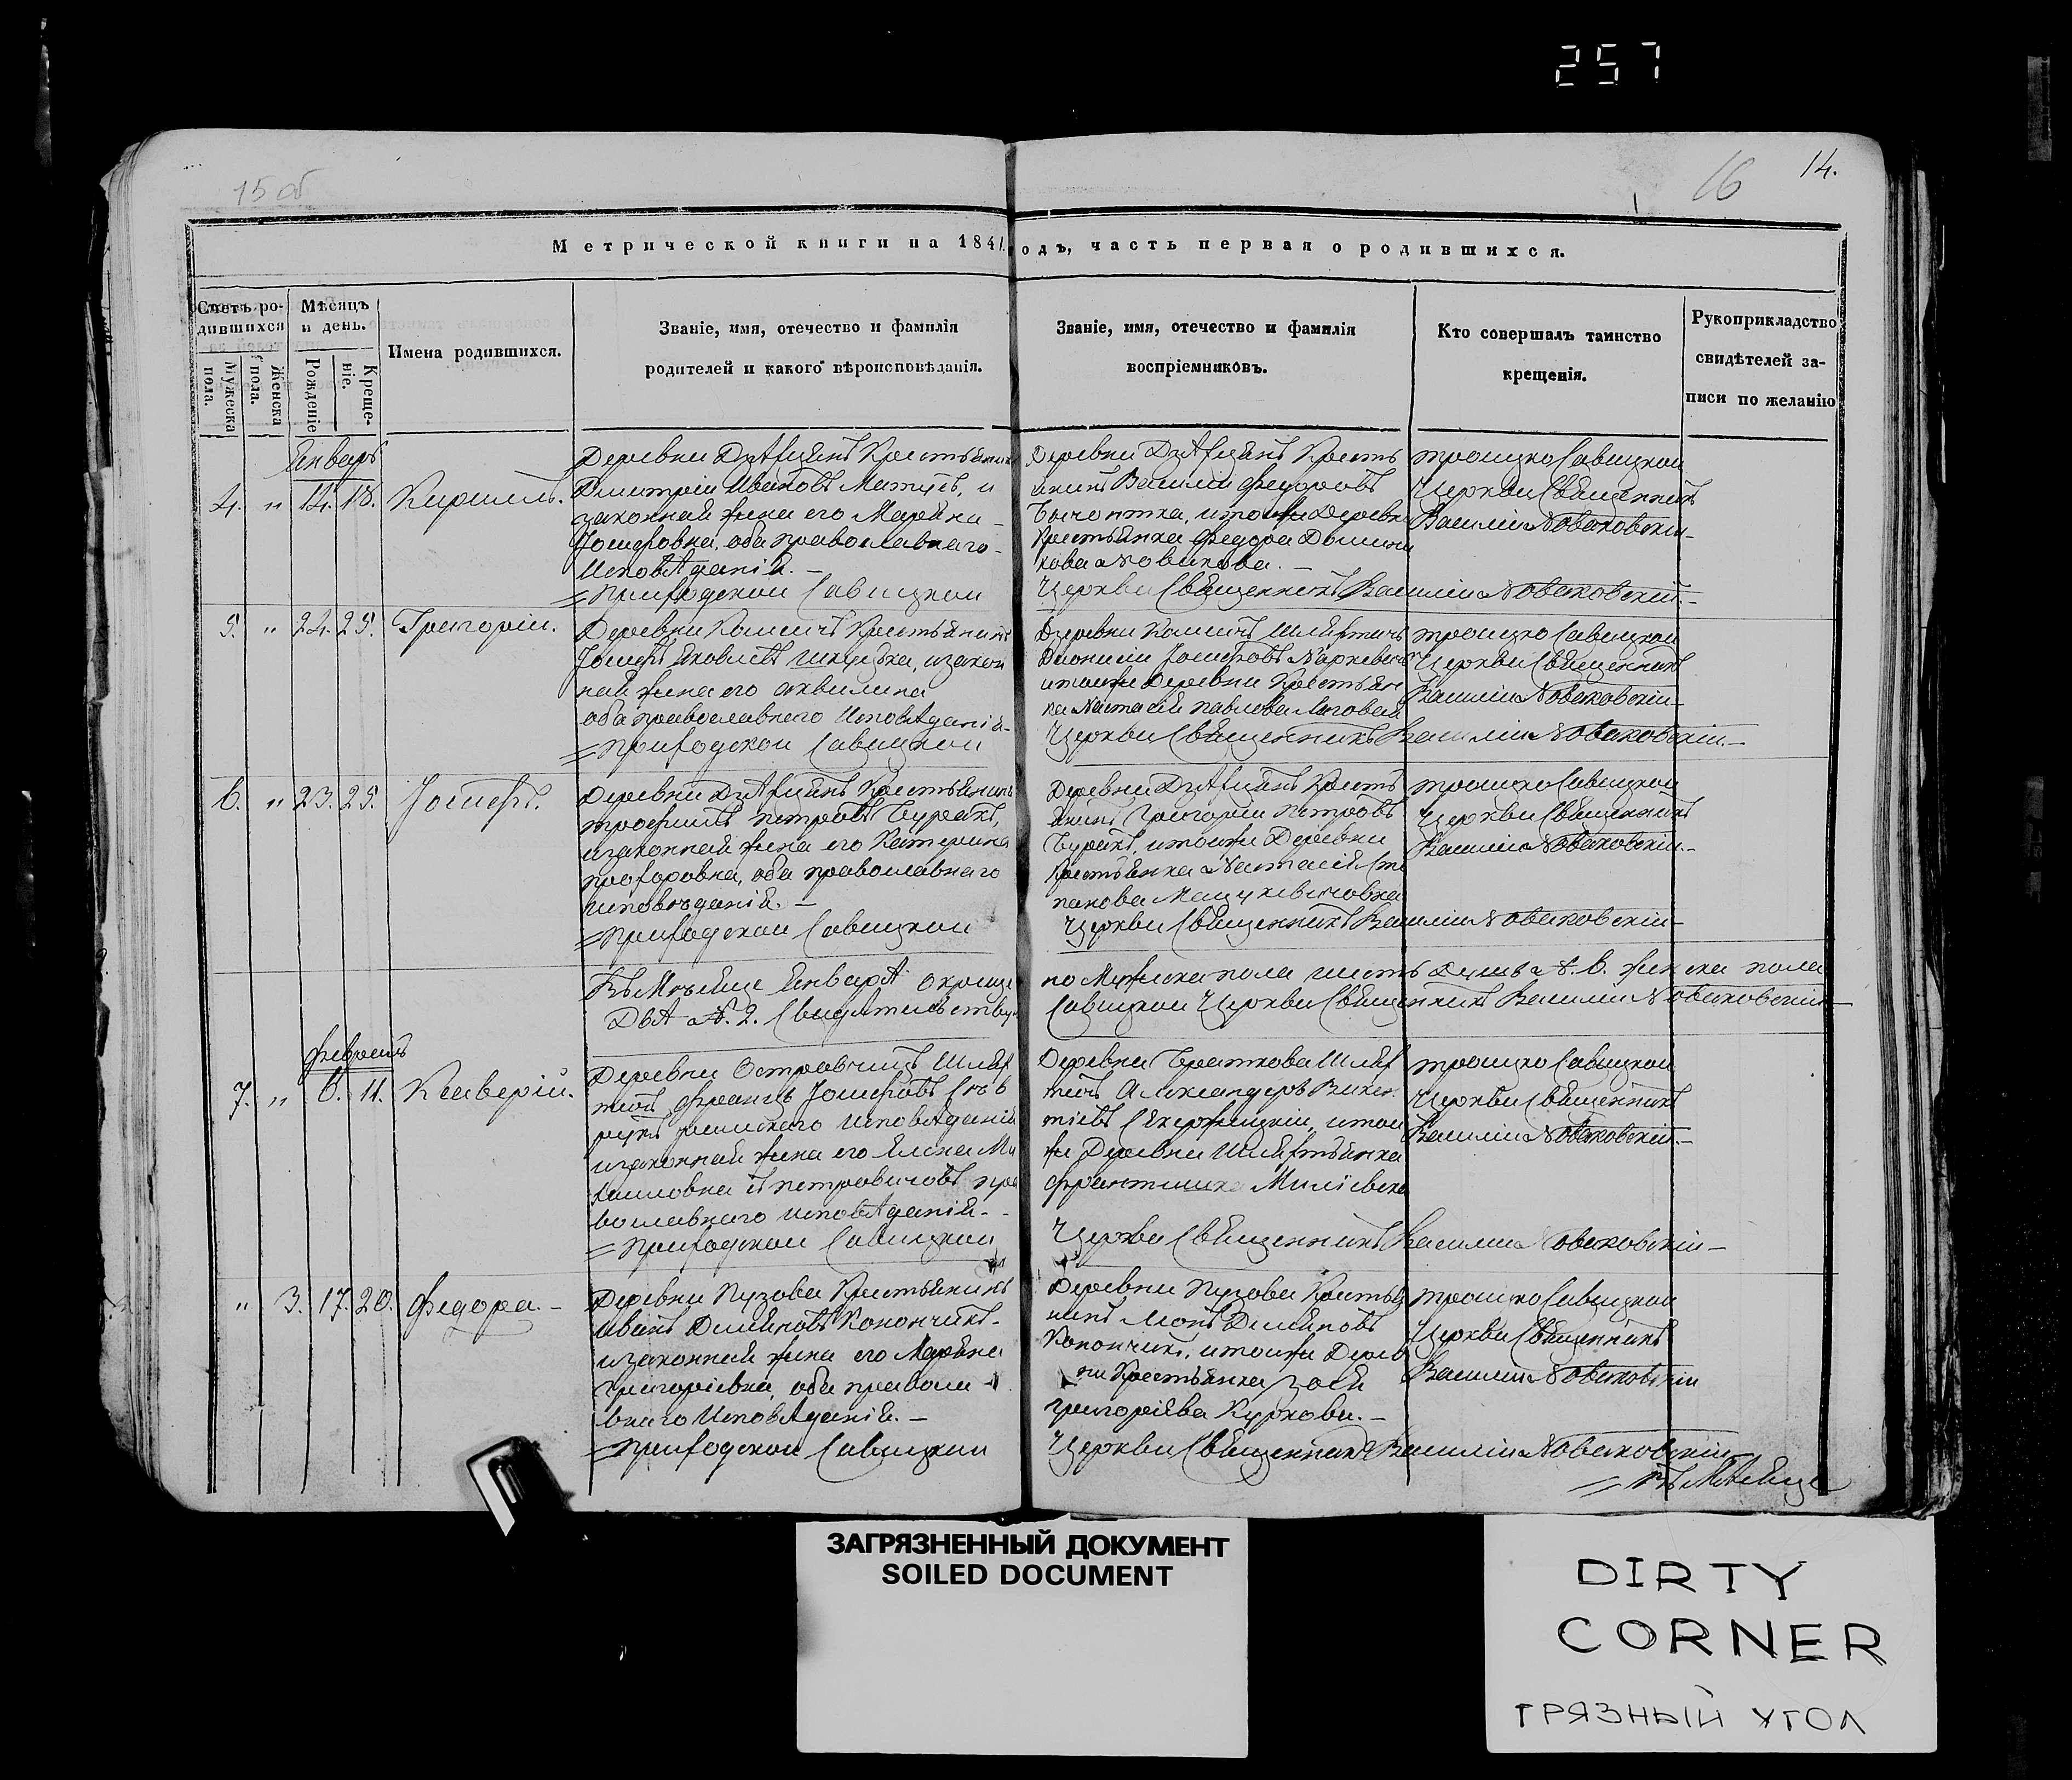 257
15 об
16
14.
Метрической книги на 1841 годъ, часть первая о родившихся.
Счетъ родившихся
Мужеска пола.
Женска пола.
Мѣсяцъ и день.
Рожденіе
Крещеніе.
Имена родившихся.
Званіе, имя, отечество и фамилія
родителей и какого вѣроисповѣданія.
Званіе, имя, отечество и фамилія
воспріемниковъ.
Кто совершалъ таинство
крещенія.
Рукоприкладство
свидѣтелей за-
писи по желанію
Январь
4. " 14. 18. Кириллъ.
Деревни Крестьянинъ
Дмитрій Ивановъ и
законная жена его Марьяна
Іосифовна, оба православнаго
Исповѣданія. —
Приходской Савицкой
Деревни Кресть
янинъ Василій Федоровъ
и тойже Деревни
Крестьянка Федора
Новикова. —
Церкви Священникъ Василій Новаковскій. —
Троицко Савицкой
Церкви Священникъ
Василій Новаковскій —
5. " 24. 25. Григорій.
Деревни Крестьянинъ
Іосифъ Яковлевъ и закон
ная жена его Аквилина
оба православнаго Исповѣданія —
Приходской Савицкой
Деревни Шляхтичъ
Діонисій Іосифовъ Наркевичъ
и тойже Деревни Крестьян
ка Настасія Павлова
Церкви Священникъ Василій Новаковскій. —
Троицко Савицкой
Церкви Священникъ
Василій Новаковскій —
6. " 23. 25. Іосифъ.
Деревни Крестьянинъ
Трофимъ Петровъ Буракъ,
и законная жена его Катерина
Прохоровна, оба православнаго
исповѣданія. —
Приходской Савицкой
Деревни Кресть
янинъ Григорій Петровъ
Буракъ, и тойже Деревни
Крестьянка Настасія Сте
панова
Церкви Священникъ Василій Новаковскій —
Троицко Савицкой
Церкви Священникъ
Василій Новаковскій. —
Въ Мѣсяце Января окреще
но Мужеска пола шесть Душъ №. 6. женска пола
Двѣ №. 2. Свидѣтельству
Савицкой Церкви Священникъ Василій Новаковскій —
Февраль
7. " 6. 11. Ксаверій.
Деревни Шлях
тичъ Францъ Іосифовъ
римскаго Исповѣданія
и законная жена его Елена Ми
хайловна изъ Петровичовъ пра
вославнаго исповѣданія. —
Приходской Савицкой
Деревни Шлях
тичъ Александеръ Викен
тіевъ и той
же Деревни Шляхтянка
Францишка
Церкви Священникъ Василій Новаковскій —
Троицко Савицкой
Церкви Священникъ
Василій Новаковскій. —
" 3. 17. 20. Федора. —
Деревни Пузова Крестьянинъ
Иванъ Демяновъ Конончикъ
и законная жена его Марьяна
Григоріевна, оба правосла
внаго Исповѣданія. —
Приходской Савицкой
Деревни Пузова Крестья
нинъ Демяновъ
Конончикъ, и тойже Дерев
ни Крестьянка Зося
Григоріева Куркова. —
Церкви Священникъ Василій Новаковскій
Троицко Савицкой
Церкви Священникъ
Василій Новаковскій
Въ Мѣсяце
ЗАГРЯЗНЕННЫЙ ДОКУМЕНТ
SOILED DOCUMENT
DIRTY
CORNER
ГРЯЗНЫЙ УГОЛ